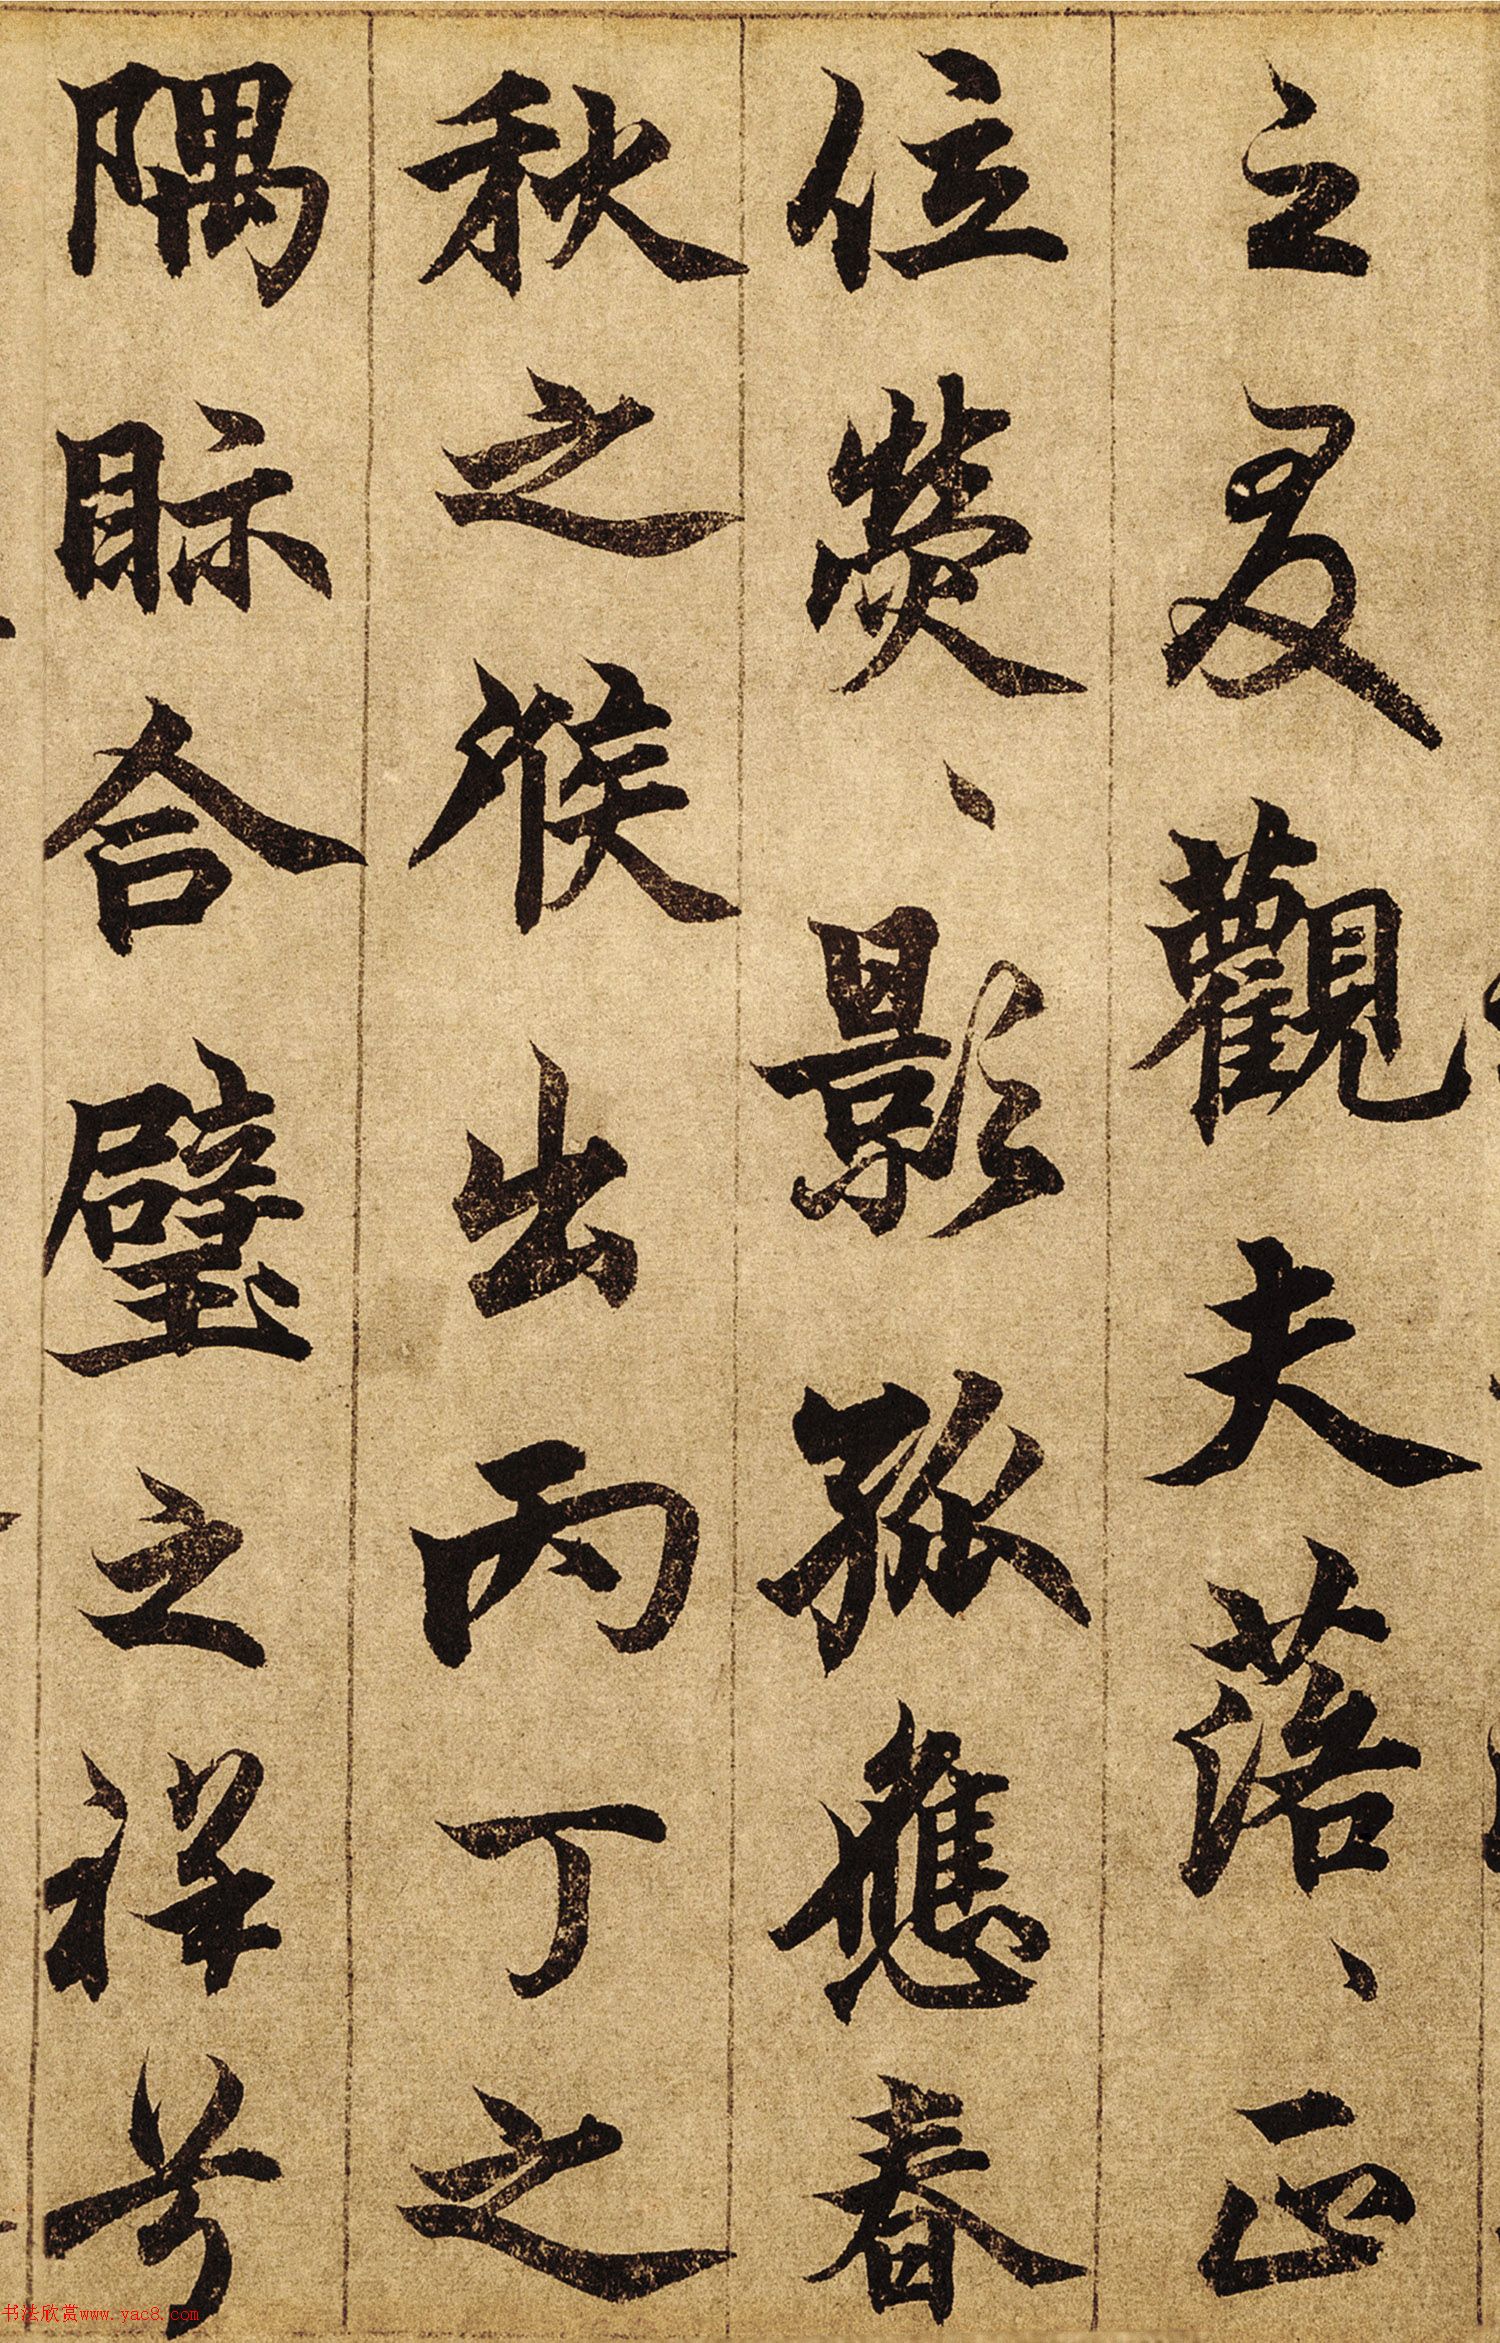 之叟觀夫落〻正
位熒〻影孤應春
秋之候出丙丁之
隅眎合璧之祥兮
书法欣赏www.yac8.com